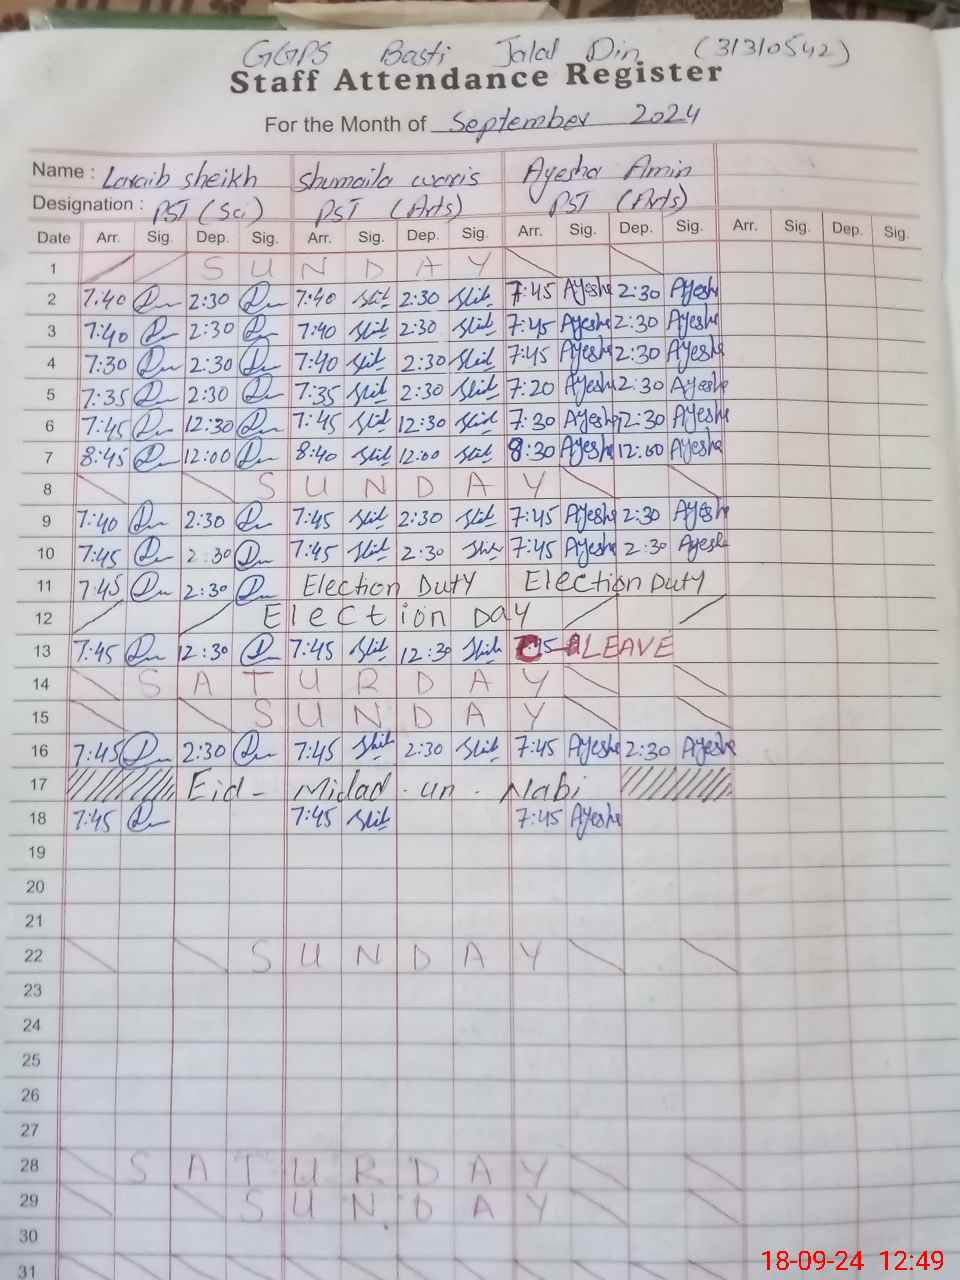 GGPS Basti Jalal Din (31310542)
Staff Attendance Register
For the Month of September 2024
Name : Laraib sheikh Shumaila waris Ayesha Amin
Designation : PST (Sci) PST (Arts) PST (Arts)
Date Arr. Sig. Dep. Sig. Arr. Sig. Dep. Sig. Arr. Sig. Dep. Sig. Arr. Sig. Dep. Sig.
1 SUNDAY
2 7:40 2:30 7:40 2:30 7:45 Ayesha 2:30 Ayesha
3 7:40 2:30 7:40 2:30 7:45 Ayesha 2:30 Ayesha
4 7:30 2:30 7:40 2:30 7:45 Ayesha 2:30 Ayesha
5 7:35 2:30 7:35 2:30 7:20 Ayesha 2:30 Ayesha
6 7:45 12:30 7:45 12:30 7:30 Ayesha 12:30 Ayesha
7 8:45 12:00 8:40 12:00 8:30 Ayesha 12:00 Ayesha
8 SUNDAY
9 7:40 2:30 7:45 2:30 7:45 Ayesha 2:30 Ayesha
10 7:45 2:30 7:45 2:30 7:45 Ayesha 2:30 Ayesha
11 7:45 2:30 Election Duty Election Duty
12 Election Day
13 7:45 12:30 7:45 12:30 LEAVE
14 SATURDAY
15 SUNDAY
16 7:45 2:30 7:45 2:30 7:45 Ayesha 2:30 Ayesha
17 Eid- Milad-un-Nabi
18 7:45 7:45 7:45 Ayesha
19
20
21
22 SUNDAY
23
24
25
26
27
28 SATURDAY
29 SUNDAY
30
31
18-09-24 12:49